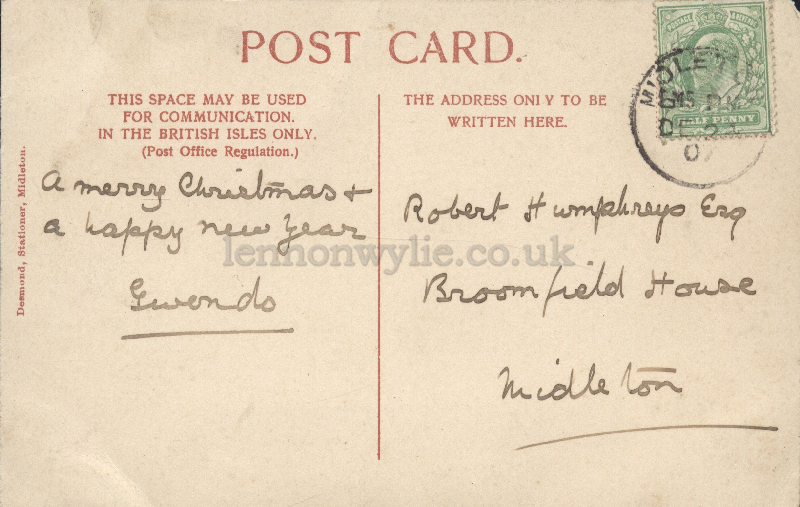 POST CARD.
THIS SPACE MAY BE USED
FOR COMMUNICATION.
IN THE BRITISH ISLES ONLY.
(Post Office Regulation.)
THE ADDRESS ONLY TO BE
WRITTEN HERE.
POSTAGE
HALFPENNY
MIDLETON
DE 24
07
Desmond, Stationer, Midleton.
A merry Christmas +
a happy new year
Gwendo
Robert Humphreys Esq
Broomfield House
Midleton
lennonwylie.co.uk